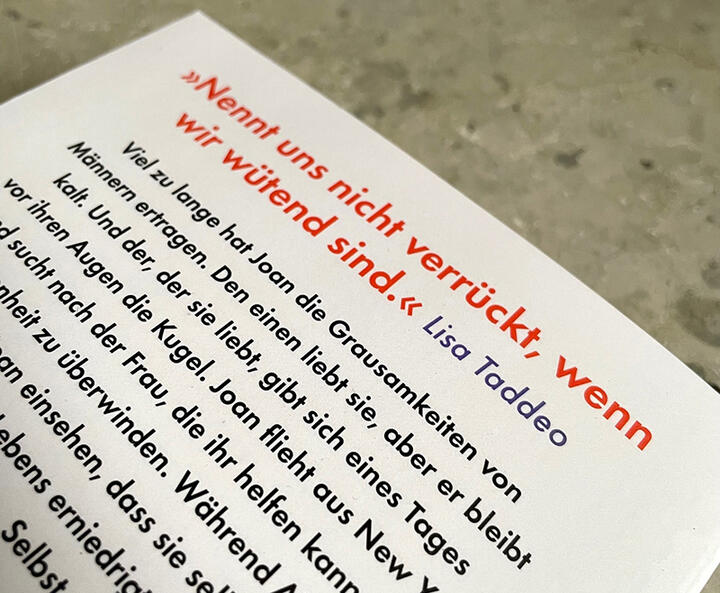 »Nennt uns nicht verrückt, wenn
wir wütend sind.« Lisa Taddeo
Viel zu lange hat Joan die Grausamkeiten von
Männern ertragen. Den einen liebt sie, aber er bleibt
kalt. Und der, der sie liebt, gibt sich eines Tages
vor ihren Augen die Kugel. Joan flieht aus New
sucht nach der Frau, die ihr helfen kann
zu überwinden. Während
einsehen, dass sie
Selbst